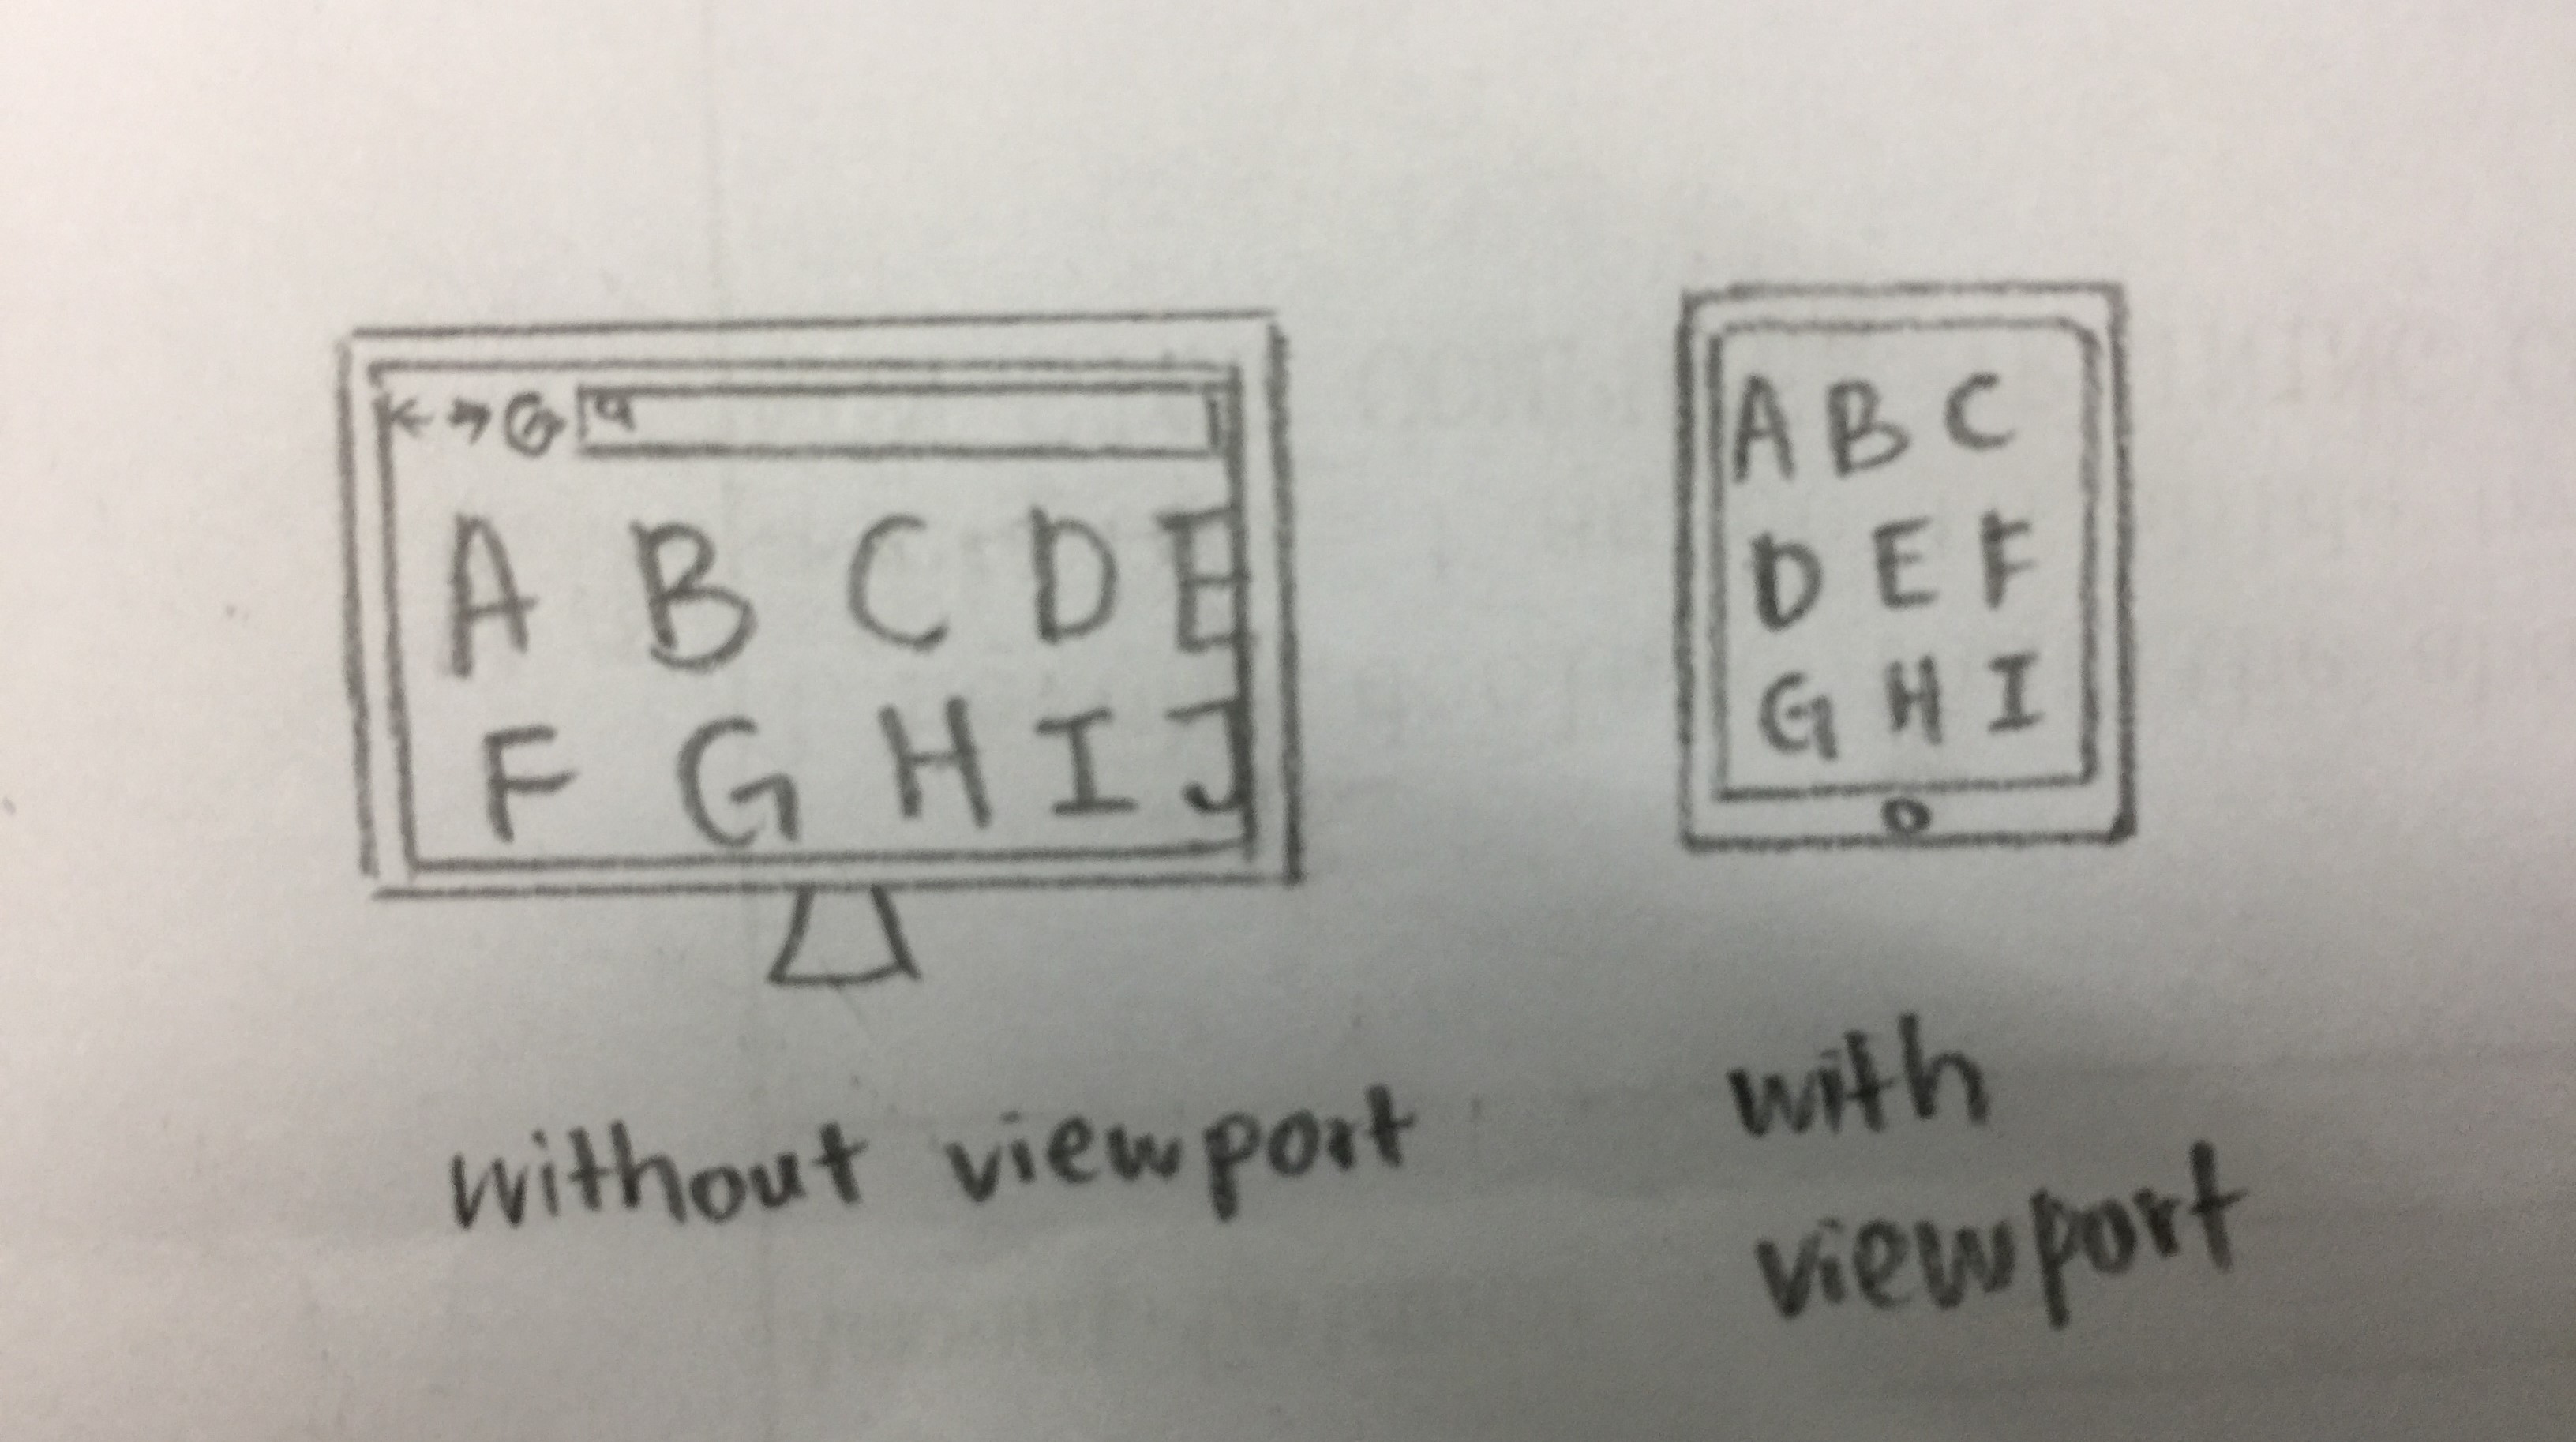 A B C D E
F G H I J
without viewport
A B C
D E F
G H I
with
viewport